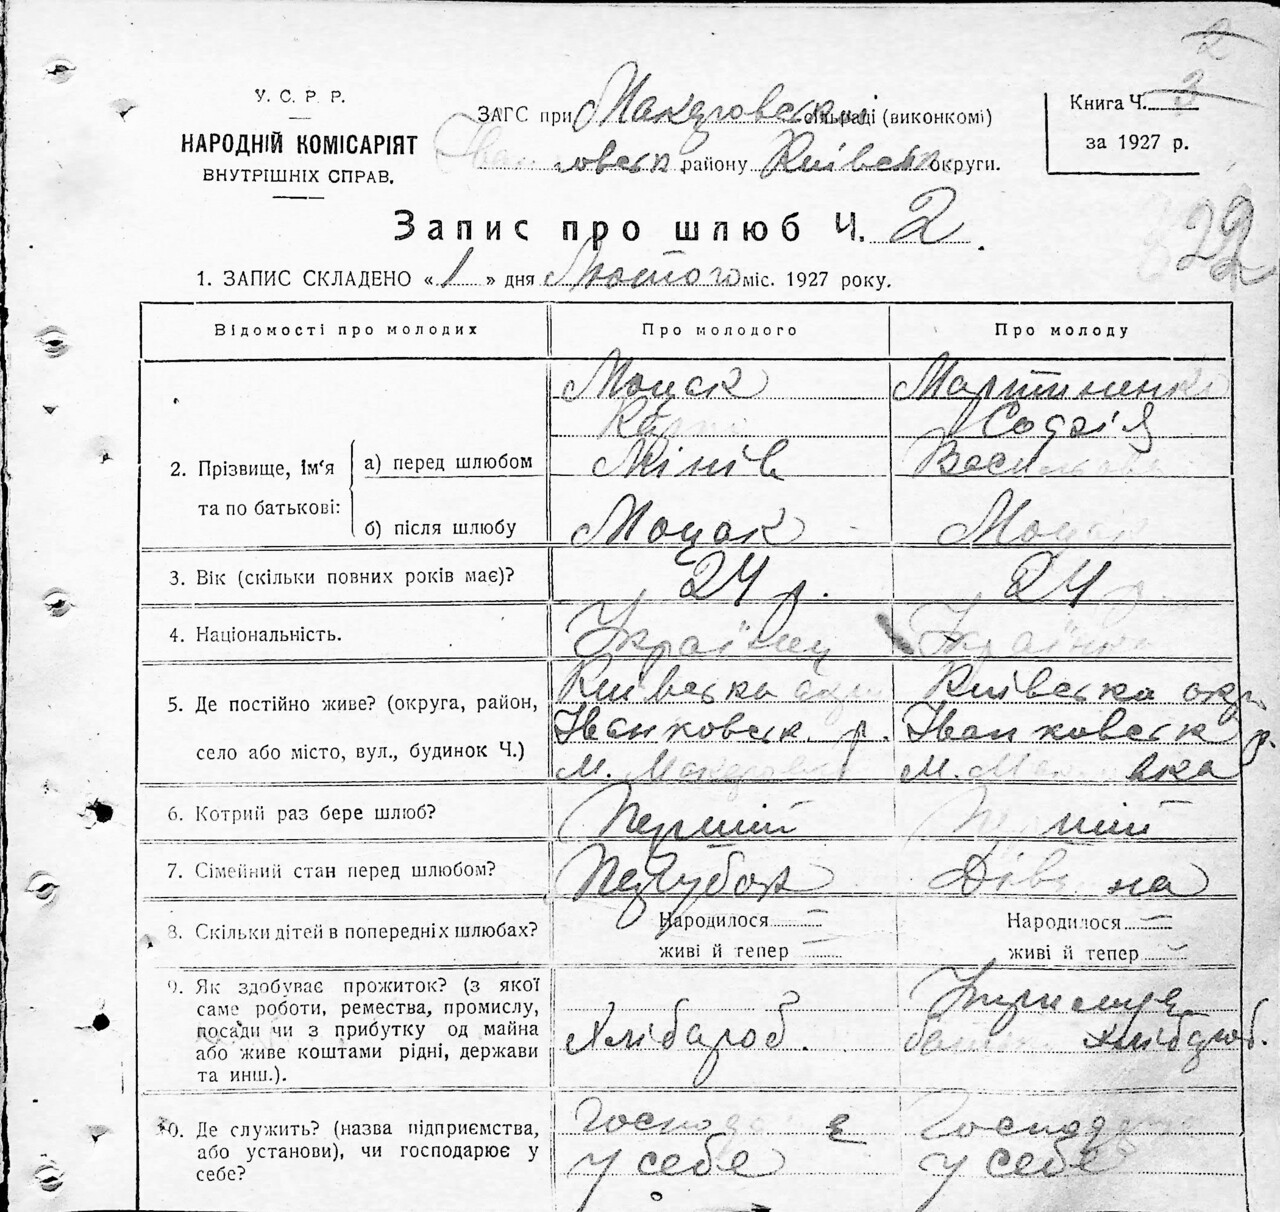 2
У. С. Р. Р.
НАРОДНІЙ КОМІСАРІЯТ
ВНУТРІШНІХ СПРАВ.
ЗАГС при сільраді (виконкомі)
району Київськ округи.
Книга Ч. 3
за 1927 р.
Запис про шлюб Ч. 2
22
1. ЗАПИС СКЛАДЕНО « 1 » дня Лютого міс. 1927 року.
Відомості про молодих Про молодого Про молоду
2. Прізвище, ім'я та по батькові:
а) перед шлюбом
б) після шлюбу
Моцак
Мінів
Моцак
Мартиненко
Софія
Моцак
3. Вік (скільки повних років має)? 24 р. 24 р.
4. Національність. Українец Українка
5. Де постійно живе? (округа, район,
село або місто, вул., будинок Ч.)
Київська окр
Іванковськ. р.
Київська окр
Іванковськ р.
6. Котрий раз бере шлюб? Перший Перший
7. Сімейний стан перед шлюбом? Парубок Дівчина
8. Скільки дітей в попередніх шлюбах?
Народилося — Народилося —
живі й тепер — живі й тепер —
9. Як здобуває прожиток? (з якої
саме роботи, ремества, промислу,
посади чи з прибутку од майна
або живе коштами рідні, держави
та инш.).
Хлібароб.
батько Хлібароб.
10. Де служить? (назва підприємства,
або установи), чи господарює у
себе?
у себе
у себе